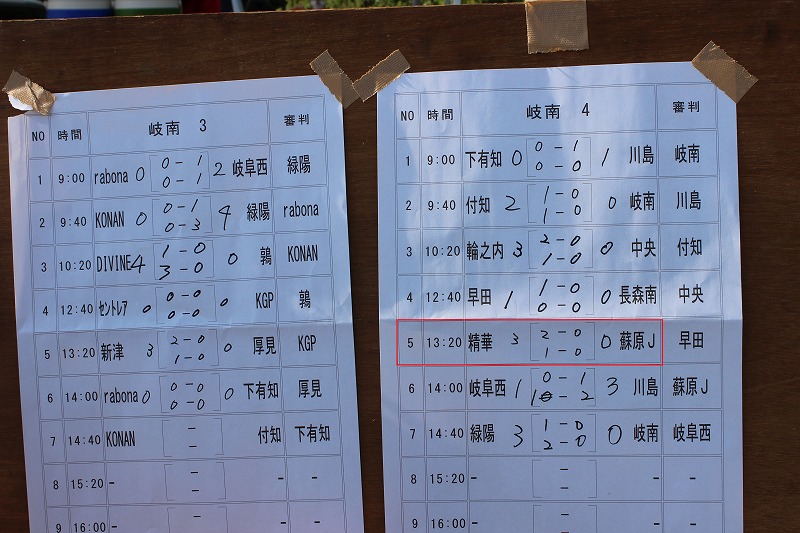 NO 時間 岐南 3 審判
1 9:00 rabona 0 0-1 0-1 2 岐阜西 緑陽
2 9:40 KONAN 0 0-1 0-3 4 緑陽 rabona
3 10:20 DIVINE 4 1-0 3-0 0 鶉 KONAN
4 12:40 セントレア 0 0-0 0-0 0 KGP 鶉
5 13:20 新津 3 2-0 1-0 0 厚見 KGP
6 14:00 rabona 0 0-0 0-0 0 下有知 厚見
7 14:40 KONAN - - 付知 下有知
8 15:20 - - - - -
9 16:00 - - - -
NO 時間 岐南 4 審判
1 9:00 下有知 0 0-1 0-0 1 川島 岐南
2 9:40 付知 2 1-0 1-0 0 岐南 川島
3 10:20 輪之内 3 2-0 1-0 0 中央 付知
4 12:40 早田 1 1-0 0-0 0 長森南 中央
5 13:20 精華 3 2-0 1-0 0 蘇原J 早田
6 14:00 岐阜西 1 0-1 1-2 3 川島 蘇原J
7 14:40 緑陽 3 1-0 2-0 0 岐南 岐阜西
8 15:20 - - - - -
9 16:00 - - - - -